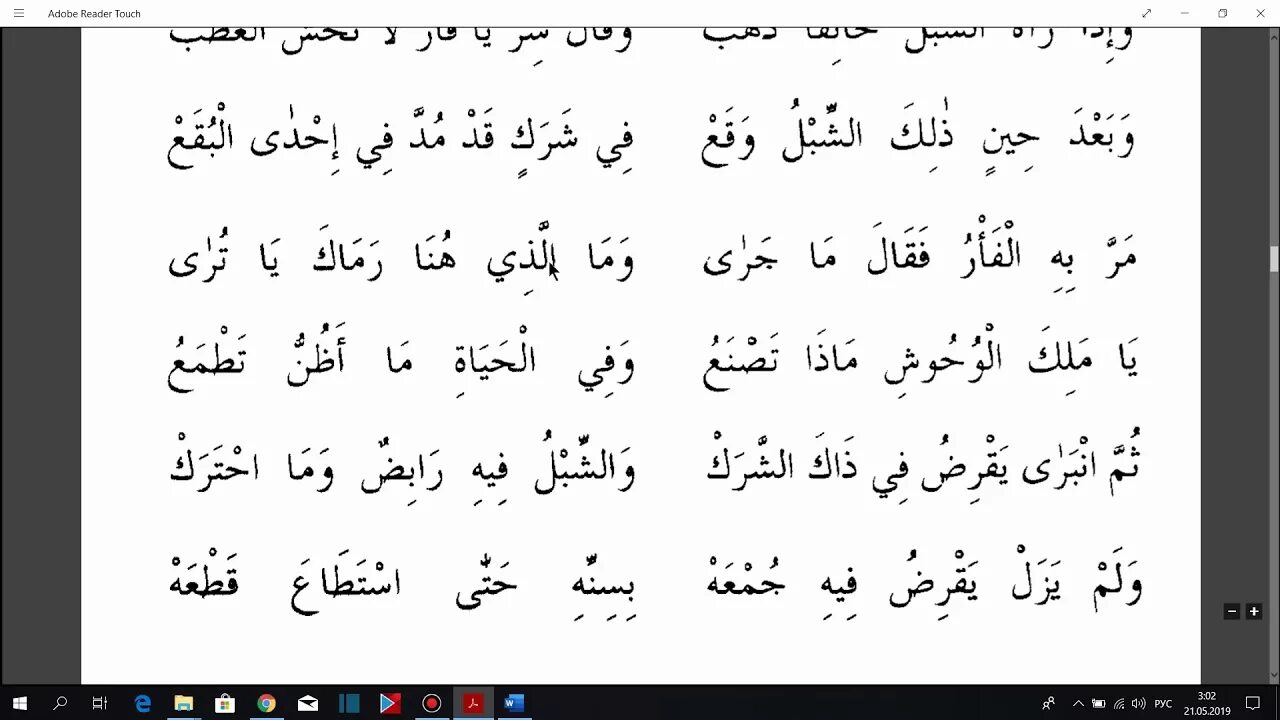 Adobe Reader Touch
وَبَعْدَ حِينٍ ذٰلِكَ الشِّبْلُ وَقَعْ فِي شَرَكٍ قَدْ مُدَّ فِي إِحْدٰى الْبُقَعْ
مَرَّ بِهِ الْفَأْرُ فَقَالَ مَا جَرٰى وَمَا الَّذِي هُنَا رَمَاكَ يَا تُرٰى
يَا مَلِكَ الْوُحُوشِ مَاذَا تَصْنَعُ وَفِي الْحَيَاةِ مَا أَظُنُّ تَطْمَعُ
ثُمَّ انْبَرٰى يَقْرِضُ فِي ذَاكَ الشَّرَكْ وَالشِّبْلُ فِيهِ رَابِضٌ وَمَا احْتَرَكْ
وَلَمْ يَزَلْ يَقْرِضُ فِيهِ جُمْعَهْ بِسِنِّهِ حَتّٰى اسْتَطَاعَ قَطْعَهْ
РУС
3:02
21.05.2019